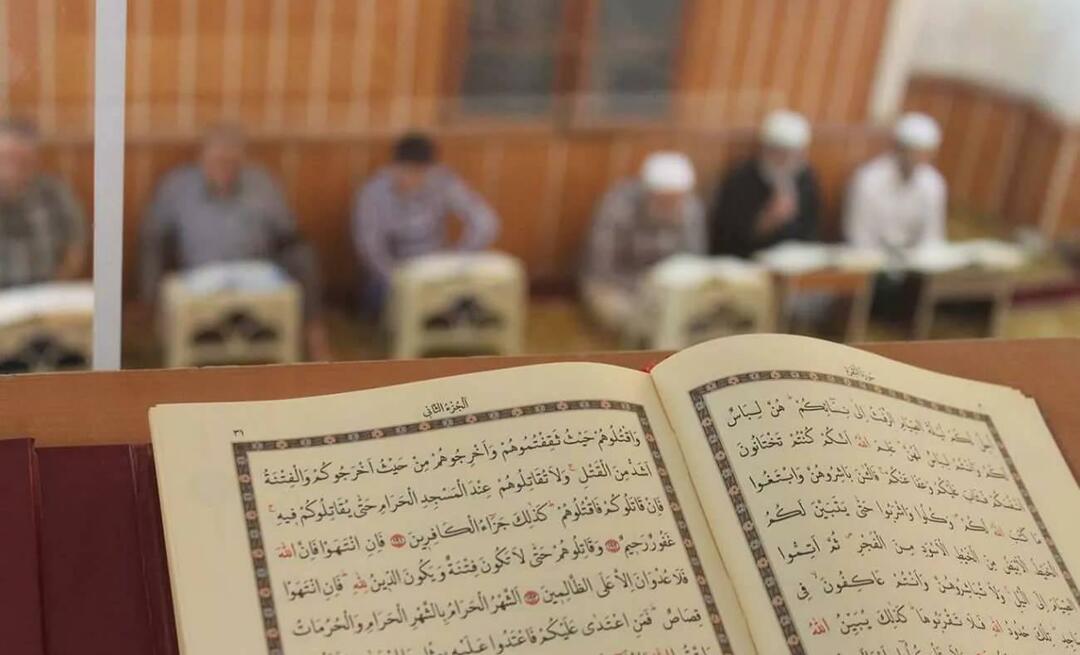 سورة البقرة
اُحِلَّ لَكُمْ لَيْلَةَ الصِّيَامِ الرَّفَثُ اِلٰى نِسَٓائِكُمْ هُنَّ لِبَاسٌ
لَكُمْ وَاَنْتُمْ لِبَاسٌ لَهُنَّ عَلِمَ اللّٰهُ اَنَّكُمْ كُنْتُمْ تَخْتَانُونَ
اَنْفُسَكُمْ فَتَابَ عَلَيْكُمْ وَعَفَا عَنْكُمْ فَالْـٰٔنَ بَاشِرُوهُنَّ وَابْتَغُوا
مَا كَتَبَ اللّٰهُ لَكُمْ وَكُلُوا وَاشْرَبُوا حَتّٰى يَتَبَيَّنَ لَكُمُ
الْخَيْطُ الْاَبْيَضُ مِنَ الْخَيْطِ الْاَسْوَدِ مِنَ الْفَجْرِ ثُمَّ اَتِمُّوا
الصِّيَامَ اِلَى الَّيْلِ وَلَا تُبَاشِرُوهُنَّ وَاَنْتُمْ عَاكِفُونَ فِي
تِلْكَ حُدُودُ اللّٰهِ فَلَا تَقْرَبُوهَا كَذٰلِكَ يُبَيِّنُ اللّٰهُ
الجزء الثاني
وَاقْتُلُوهُمْ حَيْثُ ثَقِفْتُمُوهُمْ وَاَخْرِجُوهُمْ مِنْ حَيْثُ اَخْرَجُوكُمْ وَالْفِتْنَةُ
اَشَدُّ مِنَ الْقَتْلِ وَلَا تُقَاتِلُوهُمْ عِنْدَ الْمَسْجِدِ الْحَرَامِ حَتّٰى يُقَاتِلُوكُمْ فِيهِ
فَاِنْ قَاتَلُوكُمْ فَاقْتُلُوهُمْ كَذٰلِكَ جَزَٓاءُ الْكَافِرِينَ فَاِنِ انْتَهَوْا فَاِنَّ اللّٰهَ
غَفُورٌ رَحِيمٌ وَقَاتِلُوهُمْ حَتّٰى لَا تَكُونَ فِتْنَةٌ وَيَكُونَ الدِّينُ لِلّٰهِ فَاِنِ انْتَهَوْا
فَلَا عُدْوَانَ اِلَّا عَلَى الظَّالِمِينَ اَلشَّهْرُ الْحَرَامُ بِالشَّهْرِ الْحَرَامِ وَالْحُرُمَاتُ
قِصَاصٌ فَمَنِ اعْتَدٰى عَلَيْكُمْ فَاعْتَدُوا عَلَيْهِ بِمِثْلِ